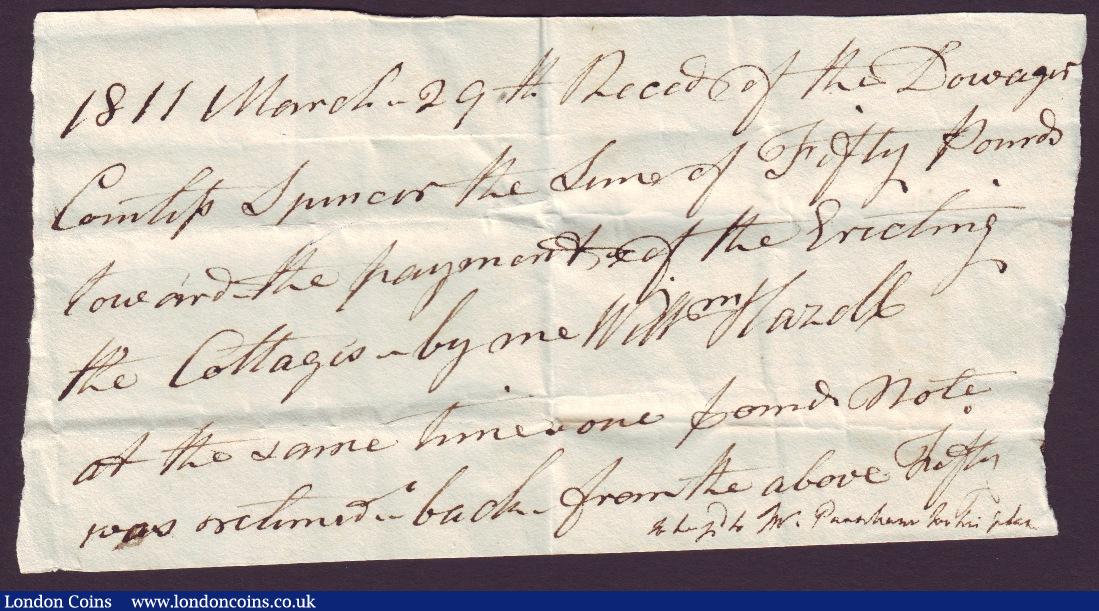 1811 March 29th Reced of the Dowager
Comtiss Spencer the Sume of Fifty Pounds
toward the payment of the Ericting
the Cottagis by me Willm Hazell
at the same time one pound Note
was returned back from the above Fifty
to be pd to Mr. for his plan
London Coins www.londoncoins.co.uk